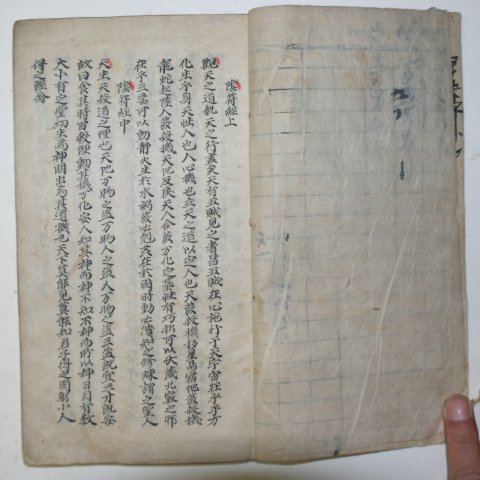 陰符經上
觀天之道執天之行盡矣天有五賊見之者昌五賊在心施行于天宇宙在乎手万
化生乎身天性人也人心機也立天之道以定人也天發殺機移星易宿地發殺機
龍蛇起陸人發殺機天地反覆天人合發万化定基性有巧拙可以伏藏九竅之邪
在乎三要可以動靜火生於木禍發必剋姦在於國時動必潰知之修煉謂之聖人
陰符經中
天生天殺道之理也天地万物之盜万物人之盜人万物之盜三盜既宜三才既安
故曰食其時百骸理動其機万化安人知其神而神不知不神而所以神日月有數
大小有定聖功生焉神明出焉其盜機也天下莫能見莫能知君子得之固躬小人
得之輕命